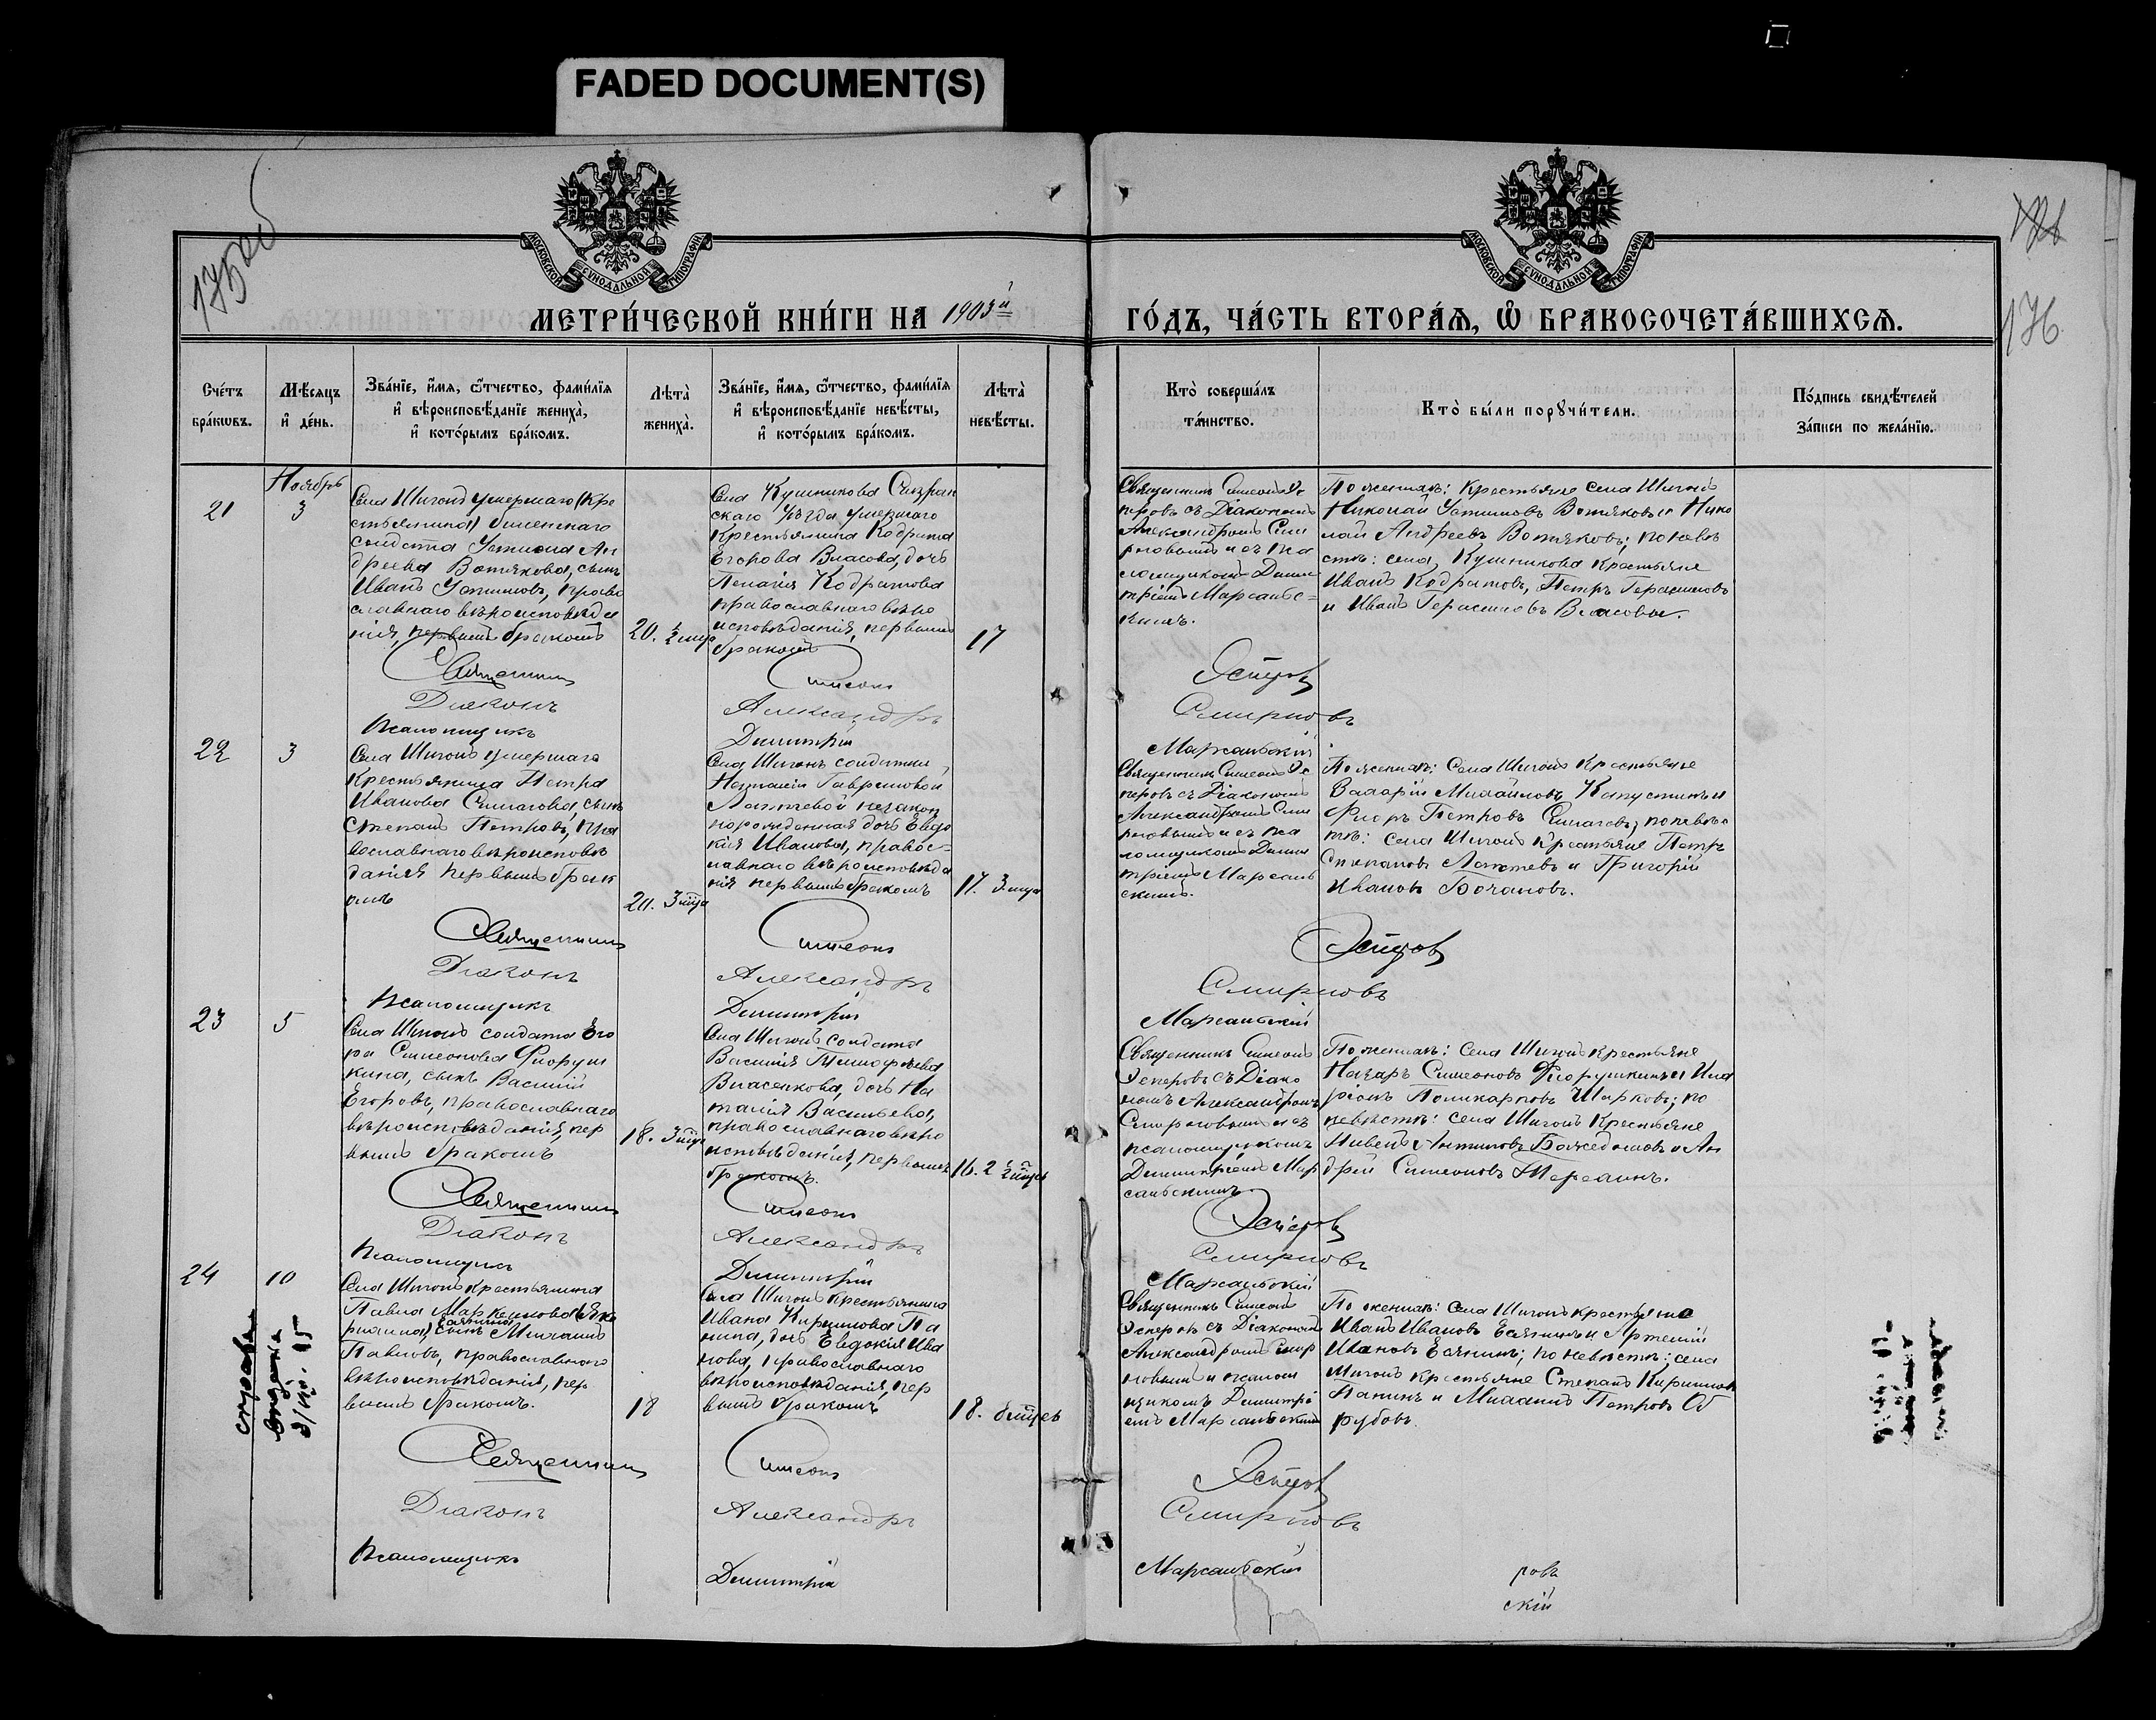 FADED DOCUMENT(S)
175 об
176
МОСКОВСКОЙ СУНОДАЛЬНОЙ ТИПОГРАФІИ
МОСКОВСКОЙ СУНОДАЛЬНОЙ ТИПОГРАФІИ
МЕТРИ́ЧЕСКОЙ КНИ́ГИ НА 1903й
ГО́ДЪ, ЧА́СТЬ ВТОРА́Ѧ, Ѽ БРАКОСОЧЕТА́ВШИХСѦ.
Сче́тъ бра́кѡвъ.
Мѣ́сѧцъ и҆ де́нь.
Зва́нїе, и҆́мѧ, ѻ҆́тчество, фами́лїѧ
и҆ вѣроисповѣ́данїе жениха̀,
и҆ кото́рымъ бра́комъ.
Лѣ́та̀ жениха̀.
Зва́нїе, и҆́мѧ, ѻ҆́тчество, фами́лїѧ
и҆ вѣроисповѣ́данїе невѣ́сты,
и҆ кото́рымъ бра́комъ.
Лѣ́та̀ невѣ́сты.
Кто̀ соверша́лъ та́инство.
Кто̀ бы́ли порꙋчи́тели.
По́дпись свидѣ́телей за́писи по жела́нїю.
21
Ноябрь
3
Села Шигонъ умершаго (кре
стьянина)
солдата Устина Ан
дреева Вотякова, сынъ
Иванъ Устиновъ, право
славнаго вѣроисповѣда
нія, первымъ бракомъ
20. ½ мца
Села Кушникова Сызран
скаго уѣзда умершаго
крестьянина Кодрата
Егорова Власова, дочь
Пелагія Кодратова
православнаго вѣро
исповѣданія, первымъ
бракомъ
17
Священникъ Симеонъ Эс
перовъ съ Діакономъ
Александромъ Смир
новымъ и съ пса
ломщикомъ Дими
тріемъ Марсаль-
скимъ.
По женихѣ: крестьяне села Шигонъ
Николай Устиновъ Вотяковъ и Нико
лай Андреевъ Вотяковъ; по невѣ
стѣ: села Кушникова крестьяне
Иванъ Кодратовъ, Петръ Герасимовъ
и Иванъ Герасимовъ Власовы.
Священникъ Симеонъ Эсперовъ
Діаконъ Александръ Смирновъ
Псаломщикъ Димитрій Марсальскій
22
3
Села Шигонъ умершаго
крестьянина Петра
Иванова Симагова, сынъ
Степанъ Петровъ, пра
вославнаго вѣроисповѣ
данія первымъ брак
омъ
20. 3 мца
Села Шигонъ солдатки
Наталіи Гавриловой
Лаптевой незакон
норожденная дочь Евдо
кія Иванова, правос-
лавнаго вѣроисповѣда
нія первымъ бракомъ
17. 3 мца
Священникъ Симеонъ Эс
перовъ съ Діакономъ
Александромъ Смир
новымъ и съ пса
ломщикомъ Дими
тріемъ Марсаль
скимъ.
По женихѣ: села Шигонъ крестьяне
Михайловъ Капустинъ и
Флоръ Петровъ Симаговъ; по невѣс
тѣ: села Шигонъ крестьяне Петръ
Степановъ Лаптевъ и Григорій
Ивановъ Бочановъ.
Священникъ Симеонъ Эсперовъ
Діаконъ Александръ Смирновъ
Псаломщикъ Димитрій Марсальскій
23
5
Села Шигонъ солдата Его
ра Симеонова Флоруш
кина, сынъ Василій
Егоровъ, православнаго
вѣроисповѣданія, пер
вымъ бракомъ
18. 3 мца
Села Шигонъ солдата
Василія Тимофеева
Власенкова, дочь На
талія Васильева,
православнаго вѣро
исповѣданія, первымъ
бракомъ.
16. 2 ½ мцъ
Священникъ Симеонъ
Эсперовъ съ Діако
номъ Александромъ
Смирновымъ и съ
псаломщикомъ
Димитріемъ Мар
сальскимъ
По женихѣ: села Шигонъ крестьяне
Назаръ Симеоновъ Флорушкинъ и Ила
ріонъ Поликарповъ Шарковъ; по
невѣстѣ: села Шигонъ крестьяне
Антиповъ и Ан
дрей Симеоновъ
Священникъ Симеонъ Эсперовъ
Діаконъ Александръ Смирновъ
Псаломщикъ Димитрій Марсальскій
24
10
справка
выдана
Села Шигонъ крестьянина
Павла Маркелова
Есянина, сынъ Михаилъ
Павловъ, православнаго
вѣроисповѣданія, пер
вымъ бракомъ.
18
Села Шигонъ крестьянина
Ивана Кириллова Па
нина, дочь Евдокія Ива
нова, православнаго
вѣроисповѣданія, пер
вымъ бракомъ
18.
Священникъ Симеонъ
Эсперовъ съ Діакономъ
Александромъ Смир
новымъ и псалом
щикомъ Димитрі
емъ Марсальскимъ
По женихѣ: села Шигонъ крестьяне
Иванъ Ивановъ Есянинъ и Артемій
Ивановъ Есянинъ; по невѣстѣ: села
Шигонъ крестьяне Степанъ Кириллов
Панинъ и Михаилъ Петровъ Об
рубовъ.
Священникъ Симеонъ Эсперовъ
Діаконъ Александръ Смирновъ
Псаломщикъ Димитрій Марсальскій
ровъ
скій